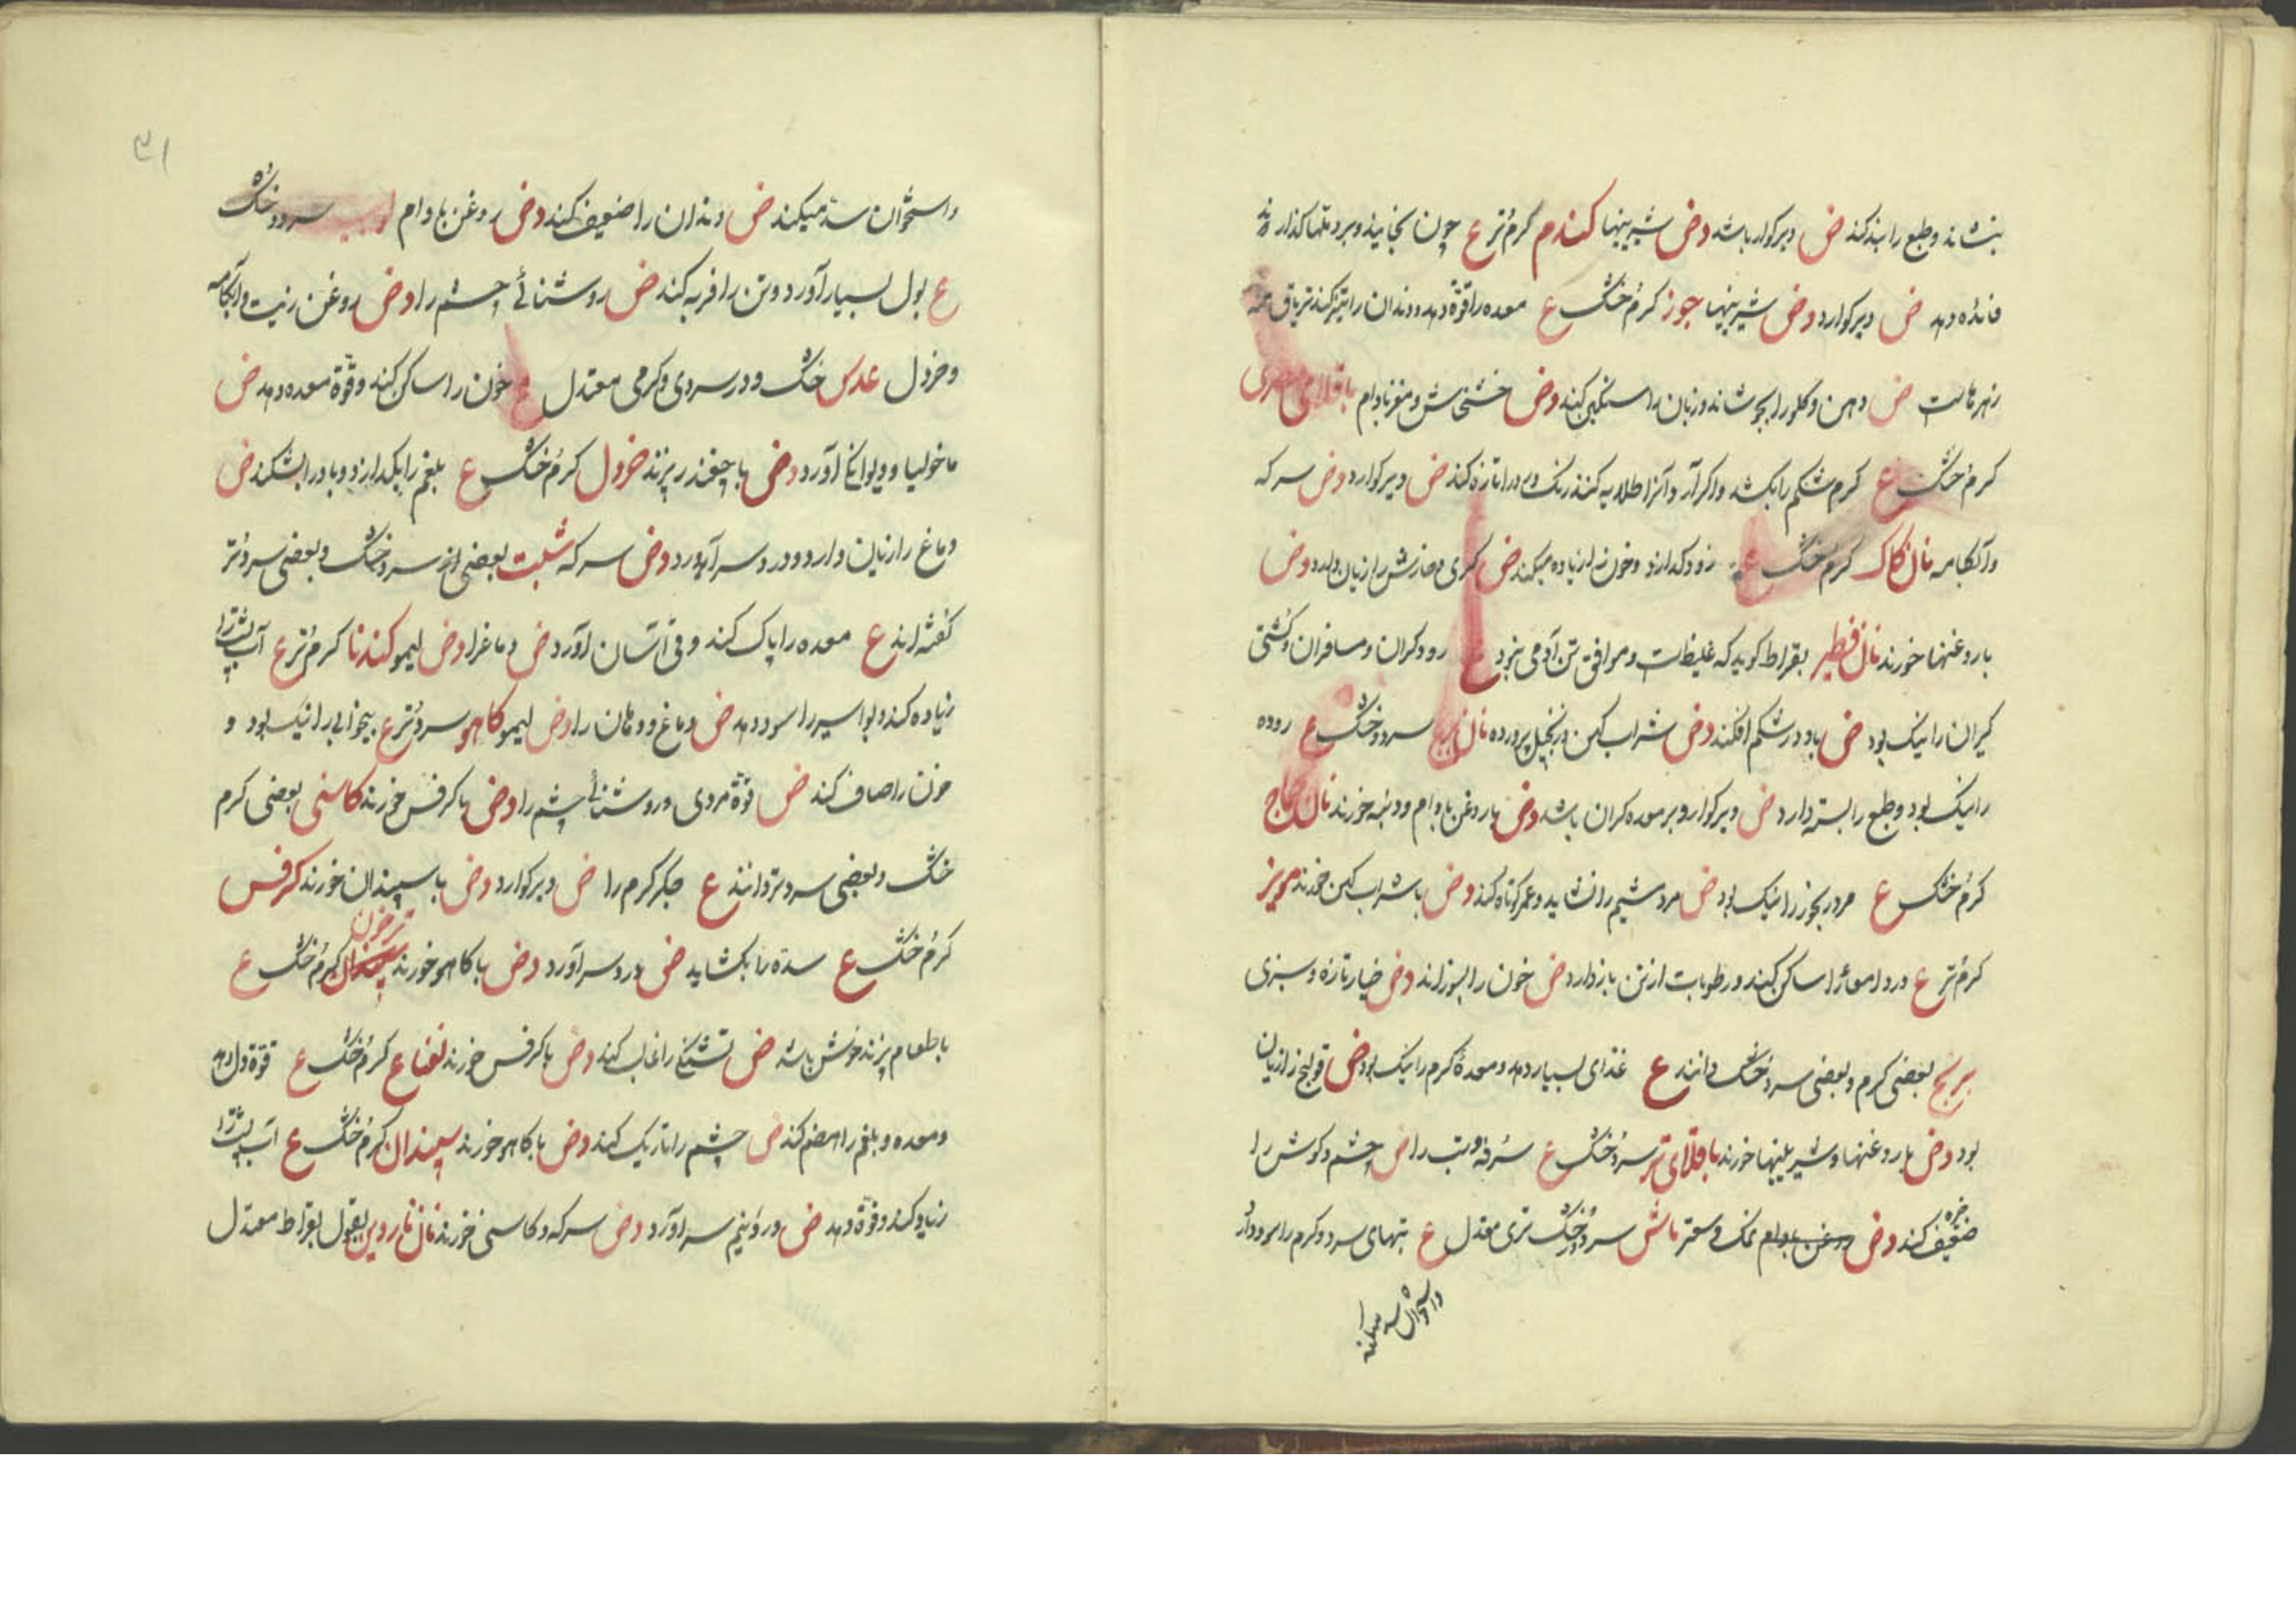 بنشاند و طبع را بند کند ض دیرکوار باشد دض شیرینیها کندم کرم تر ع چون بخایند و بر دملها کذارند
فائده دهد ض دیرکوارد دض شیرینیها جوز کرم خشک ع معده را قوة دهد و دندان را تیز کند تریاق همه
زهرهاست ض دهن و کلو را بجوشاند و زبان را سنکین کند دض خشخاش و مغز بادام باقلای مصری
کرم خشک ع کرم شکم را بکشد و اکر آرد آنرا طلا به کنند رنک روی را تازه کند ض دیرکوارد دض سرکه
و آبکامه نان کاک کرم خشک ع زود کدازد و خون را زیاده میکند ض کری و خارش را زیان دارد دض
با روغنها خورند نان فطیر بقراط کوید که غلیظ است و موافق تن آدمی نبود ع رودکران و مسافران و کشتی
کیران را نیک بود ض باد در شکم افکند دض شراب کهن و زنجبیل پرورده نان سرد و خشک ع روده
را نیک بود و طبع را بسته دارد ض دیرکوارد و بر معده کران باشد دض با روغن بادام و دنبه خورند نان
کرم خشک ع مردرنجور را نیک بود ض را نشاید و عمر کوتاه کند دض با شراب کهن خورند مویز
کرم تر ع درد امعا را ساکن کند و رطوبات از تن بازدارد ض خون را بسوزاند دض خیار تازه و سبزی
برنج بعضی کرم و بعضی سرد خشک دانند ع غذای بسیار دهد و معدهٔ کرم را نیک بود ض قولنج را زیان
بود دض با روغنها و شیرینیها خورند باقلای تر سرد خشک ع سرفه و تب را ض چشم و کوش را
خیره ضعیف کند دض روغن بادام نمک و سعتر ماش سرد و در خشک تری معتدل ع تبهای سرد و کرم را سود دارد
و استخوان سد میکند
۳۱
و استخوان سد میکند ض دندان را ضعیف کند دض روغن بادام سرد و خشک
ع بول بسیار آورد و تن را فربه کند ض روشنائی چشم را دض روغن زیت و آبکامه
و خردل عدس خشک و در سردی و کرمی معتدل ع خون را ساکن کند و قوة معده دهد ض
ماخولیا و دیوانکی آورد دض با چغندر پزند خردل کرم خشک ع بلغم را بکدازد و باد را بشکند ض
دماغ را زیان دارد و درد سر آورد دض سرکه شبت بعضی از سرد خشک و بعضی سرد تر
کفته اند ع معده را پاک کند و قی آسان آورد ض دماغ را دض لیمو کندنا کرم تر ع آب پشت را
زیاده کند و بواسیر را سود دهد ض دماغ و دهان را دض لیمو کاهو سرد تر ع بیخوابی را نیک بود و
خون را صاف کند ض قوة مردی و روشنائی چشم را دض با کرفس خورند کاسنی بعضی کرم
خشک و بعضی سرد تر دانند ع جکر کرم را ض دیرکوارد دض با سپندان خورند کرفس
کرم خشک ع سده را بکشاید ض درد سر آورد دض با کاهو خورند ترخون کرم خشک ع
با طعام پزند خوش باشد ض تشنکی را غالب کند دض با کرفس خورند نعناع کرم خشک ع قوة دل دهد
و معده و بلغم را هضم کند ض چشم را تاریک کند دض با کاهو خورند سپندان کرم خشک ع آب پشت را
زیاد کند و قوة دهد ض درد نیم سر آورد دض سرکه و کاسنی خورند نان بقول بقراط معتدل